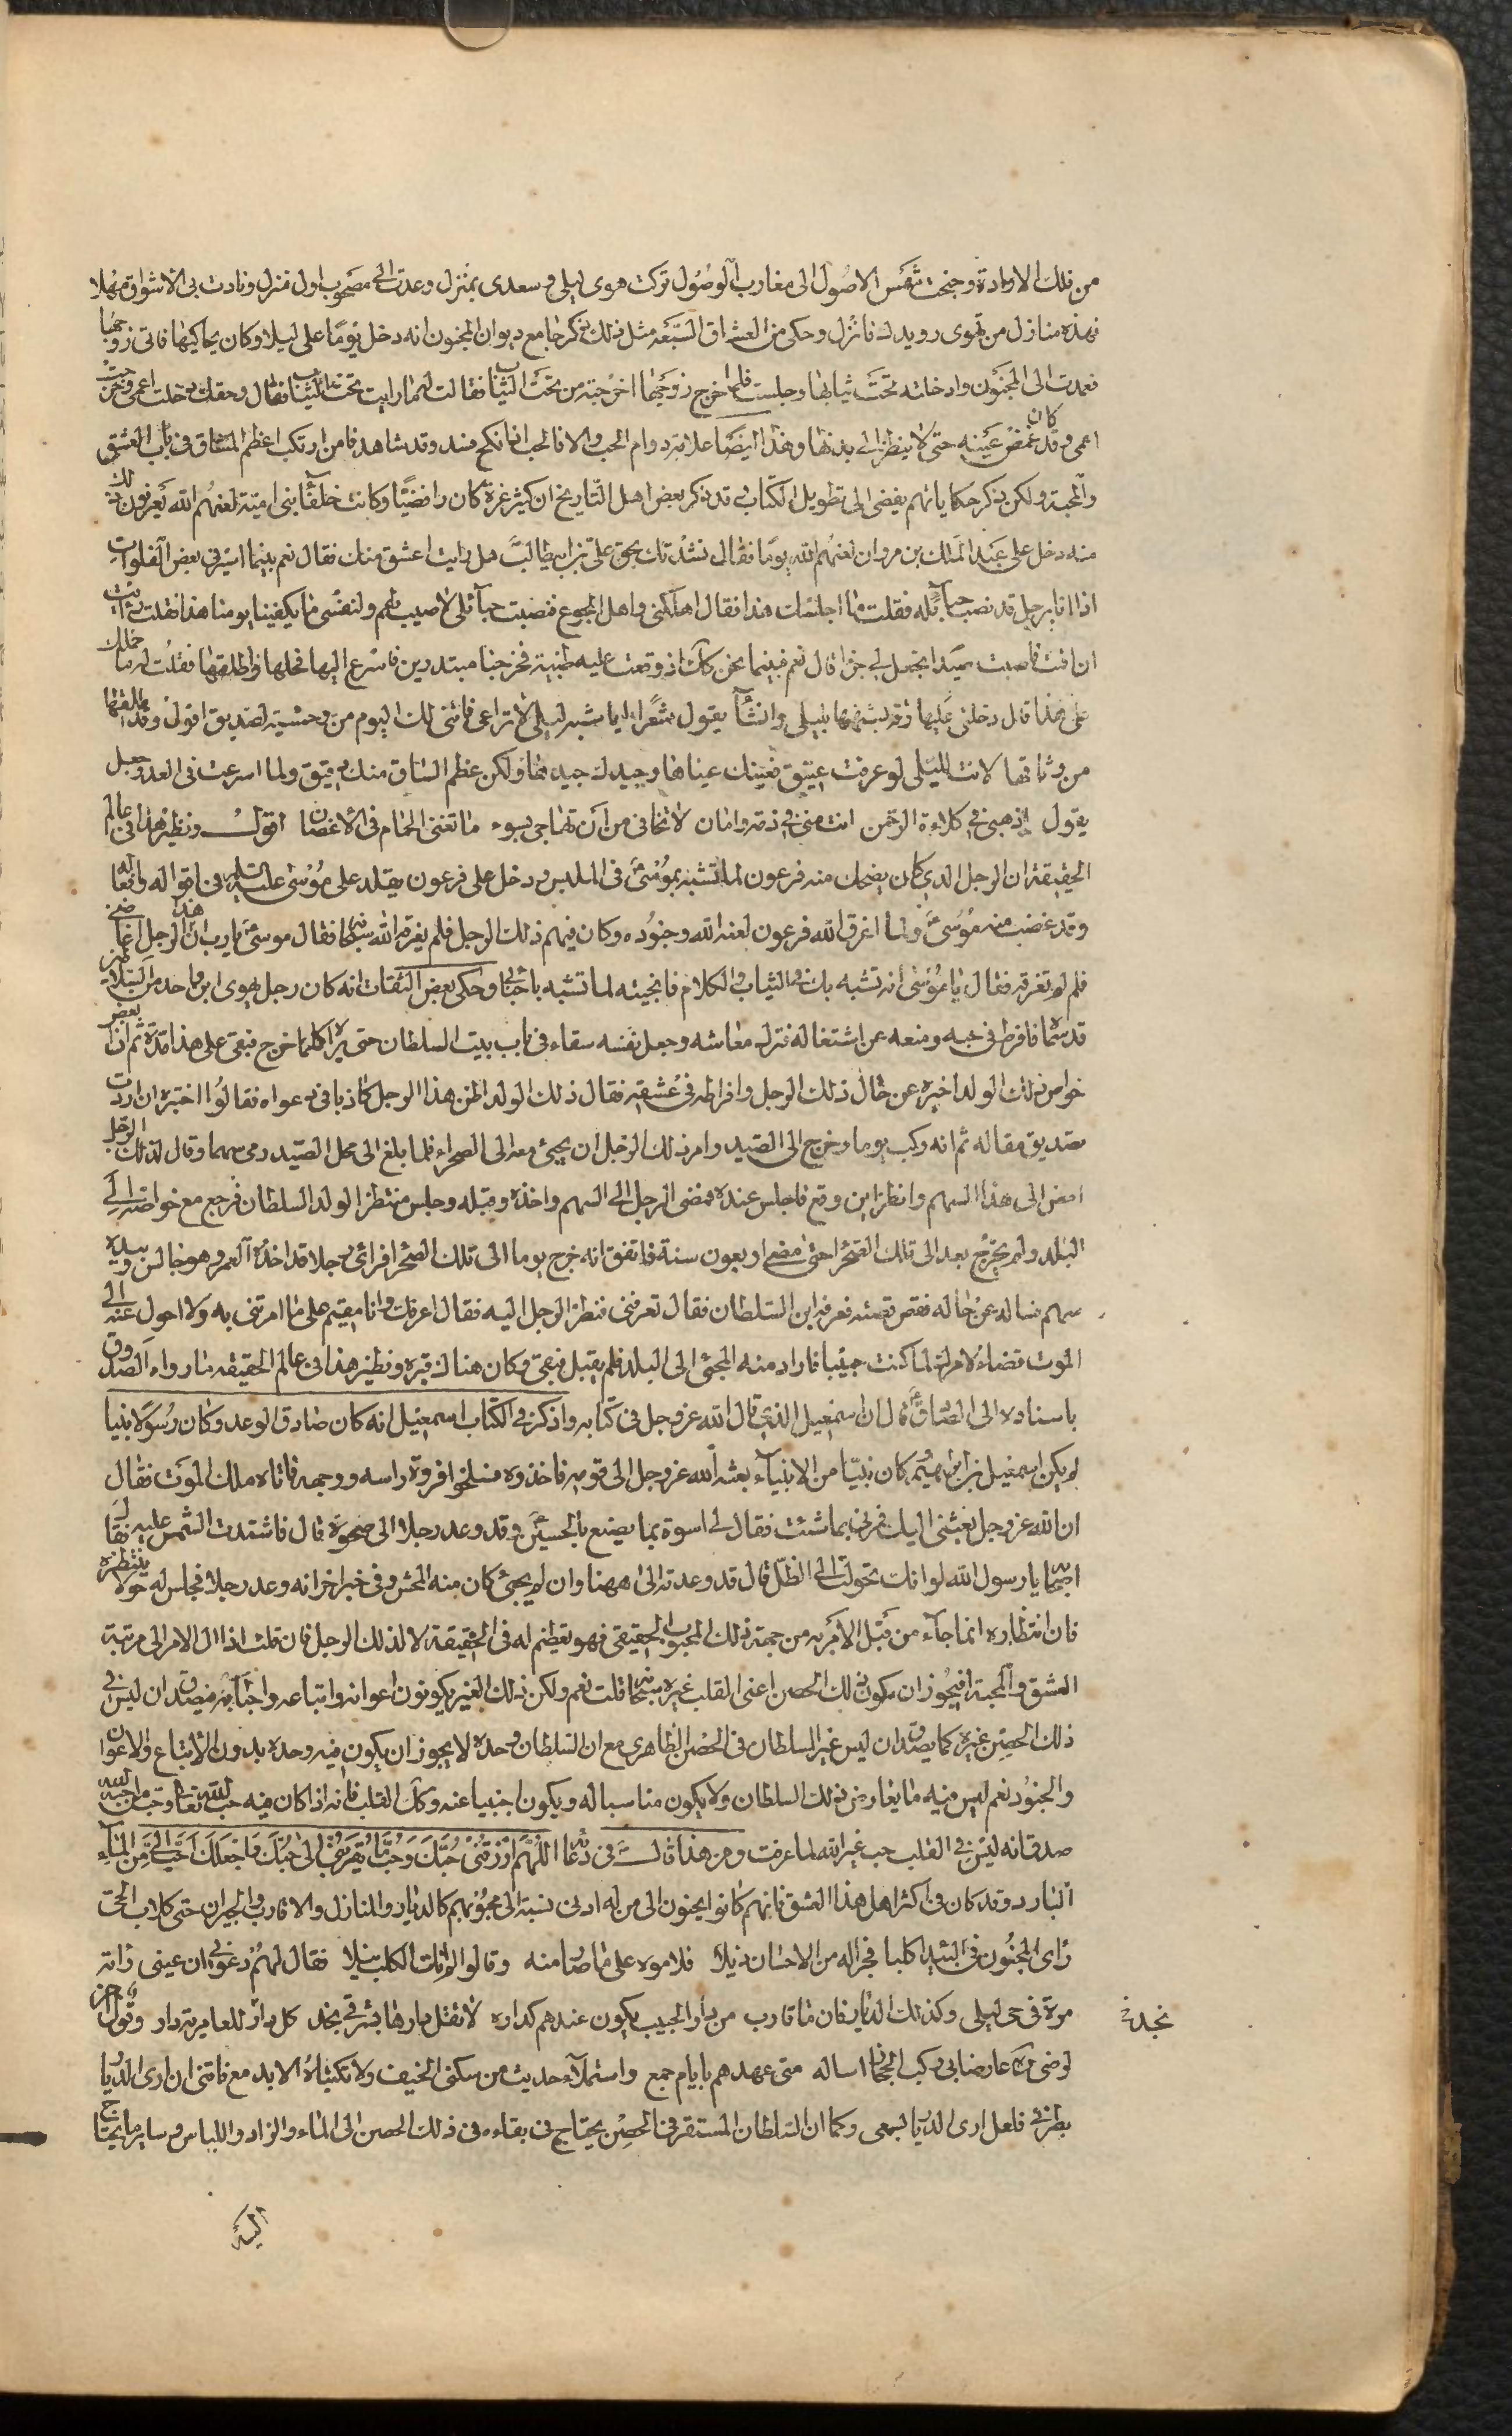 من فلك الارادة وجنحت شمس الاصول الى مغارب الوصول تركت هوى ليلى وسعدى بمنزل وعدت الى مصحوب اول منزل ونادت بى الاشواق مهلا
فهذه منازل من تهوى رويدك فانزل وحكى من العشاق السبعه مثل ذلك ذكر جامع ديوان المجنون انه دخل يوما على ليلا وكان يحاكيها فاتى زوجها
فعمدت الى المجنون وادخلته تحت ثيابها وجلست فلما خرج زوجها اخرجته من تحت الثياب فقالت له ما رايت تحت الثياب فقال وحقك دخلت اعمى وخرجت
اعمى وقد كان غمض عينيه حتى لا ينظر الى بدنها وهذا ايضا علامة دوام الحب والا فالحب اذا نكح فسد وقد شاهدنا من ارتكب اعظم المشاق فى باب العشق
والمحبة ولكن ذكر حكاياتهم يفضى الى تطويل الكتاب قد ذكر بعض اهل التاريخ ان كثير عزة كان رافضيا وكانت خلفآ بنى امية لعنهم الله يعرفون ذلك
منه دخل على عبد الملك بن مروان لعنهم الله يوما فقال نشدتك بحق على بن ابيطالب هل رايت اعشق منك فقال نعم بينما اسير فى بعض الفلوات
اذا انا برجل قد نصب حبآئله فقلت ما اجلسك هنا فقال اهلكنى واهلى الجوع فنصبت حبآئلى لاصيب لهم ولنفسى ما يكفينا يومنا هذا فقلت ارايت
ان اقمت فاصبت صيدا تجعل لى جزا قال نعم فبينما نحن كذلك اذ وقعت عليه ظبية فخرجنا مبتدرين فاسرع اليها فحلها واطلقها فقلت له ما حملك
على هذا قال دخلتنى عليها رقة لشبهها بليلى وانشآ يقول شعرا ايا شبه ليلى لا تراعى فاننى لك اليوم من وحشية لصديق اقول وقد اطلقتها
من وثاقها لانت لليلى لو عرفت عتيق فعيناك عيناها وجيدك جيدها ولكن عظم الساق منك دقيق ولما اسرعت فى العدو جعل
يقول اذهبى فى كلاءة الرحمن انت منى فى ذمة وامان لا تخافى من ان تهاجى بسوء ما تغنى الحمام فى الاغصان اقول ونظير هذا فى عالم
الحقيقة ان الرجل الذى كان يضحك منه فرعون لما تشبه بموسى فى الملبس ودخل على فرعون يقلد على موسى عليه السلم فى اقواله وافعاله
وقد غضب منه موسى ولما اغرق الله فرعون لعنه الله وجنوده وكان فيهم ذلك الرجل فلم يغرقه الله سبحانه فقال موسى يارب ان هذا الرجل اغاضنى
فلم لم تغرقه فقال يا موسى انه تشبه بك فى الثياب والكلام فانجيته لما تشبه باحبابى وحكى بعض الثقات انه كان رجل يهوى ابن واحد من السلاطين
قديما فافرط فى حبه ومنعه عن اشتغاله فترك معاشه وجعل نفسه سقاء فى باب بيت السلطان حتى يراه كلما خرج فبقى على هذا مدة ثم ان بعض
خواص ذلك الولد اخبره عن حال ذلك الرجل وافراطه فى عشقه فقال ذلك الولد اظن هذا الرجل كاذبا فى دعواه فقالوا اختبره ان اردت
تصديق مقاله ثم انه ركب يوما وخرج الى الصيد وامر ذلك الرجل ان يجيئ معه الى الصحراء فلما بلغ الى محل الصيد رمى سهما وقال لذلك الرجل
امض الى هذا السهم وانظر اين وقع فاجلس عنده فمضى الرجل الى السهم واخذه وقبله وجلس منتظرا لولد السلطان فرجع مع خواصه الى
البلد ولم يخرج بعد الى تلك الصحرا حتى مضى اربعون سنة فاتفق انه خرج يوما الى تلك الصحرا فراى رجلا قد اخذه العمر وهو جالس وبيده
سهم فساله عن حاله فقص قصته فعرفه ابن السلطان فقال تعرفنى فنظر الرجل اليه فقال اعرفك وانا مقيم على ما امرتنى به ولا احول عنه الى
الموت قضاء لامرك لما كنت حبيبا فاراد منه المجئ الى البلد فلم يقبل فبقى وكان هناك قبره ونظير هذا فى عالم الحقيقه ما رواه الصدوق
باسناده الى الصادق ع قال ان اسمعيل الذى قال الله عز وجل فى كتابه واذكر فى الكتاب اسمعيل انه كان صادق الوعد وكان رسولا نبيا
لم يكن اسمعيل بن ابراهيم كان نبيا من الانبيآء بعثه الله عز وجل الى قومه فاخذوه فسلخوا فروة راسه ووجهه فاتاه ملك الموت فقال
ان الله عز وجل بعثنى اليك فمرنى بما شئت فقال لى اسوة بما يصنع بالحسين وقد وعد رجلا الى صحوة قال فاشتدت الشمس عليه فقال له
اصحابه يا رسول الله لو انك تحولت الى الظل قال قد وعدته الى ههنا وان لم يجئ كان منه المحشر وفى خبر اخر انه وعد رجلا فجلس له حولا ينتظره
فان انتظاره انما جآء من قبل الامر به من جهة ذلك المحبوب الحقيقى فهو تعظيم له فى الحقيقة لا لذلك الرجل فان قلت اذا ال الامر الى مرتبة
العشق والمحبة افيجوز ان يكون فى ذلك الحصن اعنى القلب غيره سبحانه قلت نعم ولكن ذلك الغير يكونون اعوانه واتباعه واحبآئه فيصدق ان ليس فى
ذلك الحصن غيره كما يصدق ان ليس غير السلطان فى الحصن الظاهرى مع ان السلطان وحده لا يجوز ان يكون فيه وحده بدون الاتباع والاعوان
والجنود نعم ليس فيه ما يعارض ذلك السلطان ولا يكون مناسبا له ويكون اجنبيا عنه وكذلك القلب فانه اذا كان فيه حب الله تعالى وحب ما احبه الله
صدق انه ليس فى القلب حب غير الله لما عرفت ومن هذا قال فى دعائه اللهم ارزقنى حبك وحب ما يقربنى الى حبك واجعلك احب الى من المآء
البارد وقد كان فى اكثر اهل هذا العشق فانهم كانوا يحنون الى من له ادنى نسبة الى محبوبهم كالديار والمنازل والاقارب والجيران حتى كلاب الحى
راى المجنون فى البيدآ كلبا فجر له من الاحسان ذيلا فلاموه على ما صار منه وقالوا لم انلت الكلب نيلا فقال لهم دعونى ان عينى راته
مرة فى حى ليلى وكذلك الديار فان ما قارب من دار الحبيب يكون عندهم كداره لا تقل دارها بشرقى نجد كل دار للعامرية دار وقول اخر
نجد
لوضى عارضا بى ركب الحجاز اساله متى عهدهم بايام جمع واستملآء حديث من سكن الخيف ولا تكتباه الا بدمع فاتنى ان ارى الديار
بطرفى فلعلى ارى الديار بسمعى وكما ان السلطان المستقر فى الحصن يحتاج فى بقاءه فى ذلك الحصن الى الماء والزاد واللباس وساير ما يحتاج
اليه